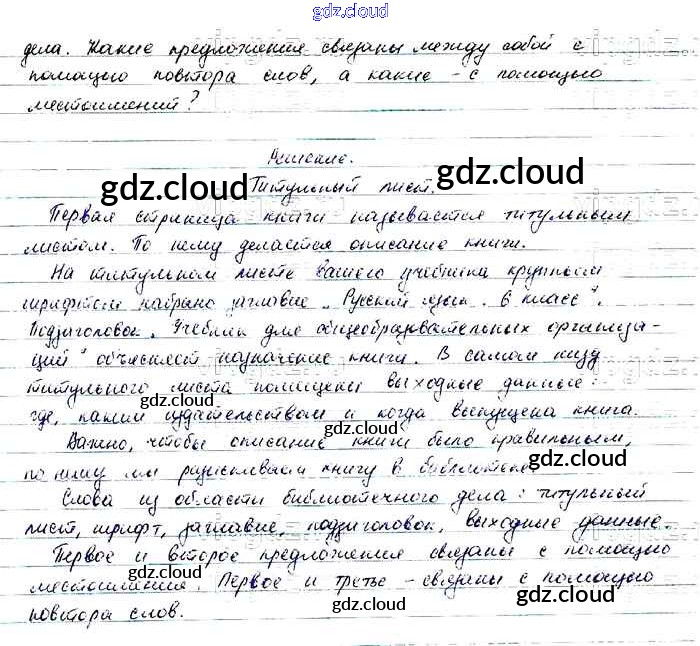 gdz.cloud
дела. Какие предложения связаны между собой с
помощью повтора слов, а какие - с помощью
местоимений?
Решение.
gdz.cloud gdz.cloud
Титульный лист.
Первая страница книги называется титульным
листом. По нему делается описание книги.
На титульном листе вашего учебника крупным
шрифтом набрано заглавие „Русский язык. 6 класс".
Подзаголовок „Учебник для общеобразовательных организа-
ций" объясняет назначение книги. В самом низу
титульного листа помещены выходные данные:
gdz.cloud gdz.cloud
где, каким издательством и когда выпущена книга.
Важно, чтобы описание книги было правильным,
по нему мы разыскиваем книгу в библиотеке.
gdz.cloud
Слова из области библиотечного дела: титульный
лист, шрифт, заглавие, подзаголовок, выходные данные.
gdz.cloud gdz.cloud
Первое и второе предложения связаны с помощью
местоимения. Первое и третье - связаны с помощью
gdz.cloud gdz.cloud
повтора слов.